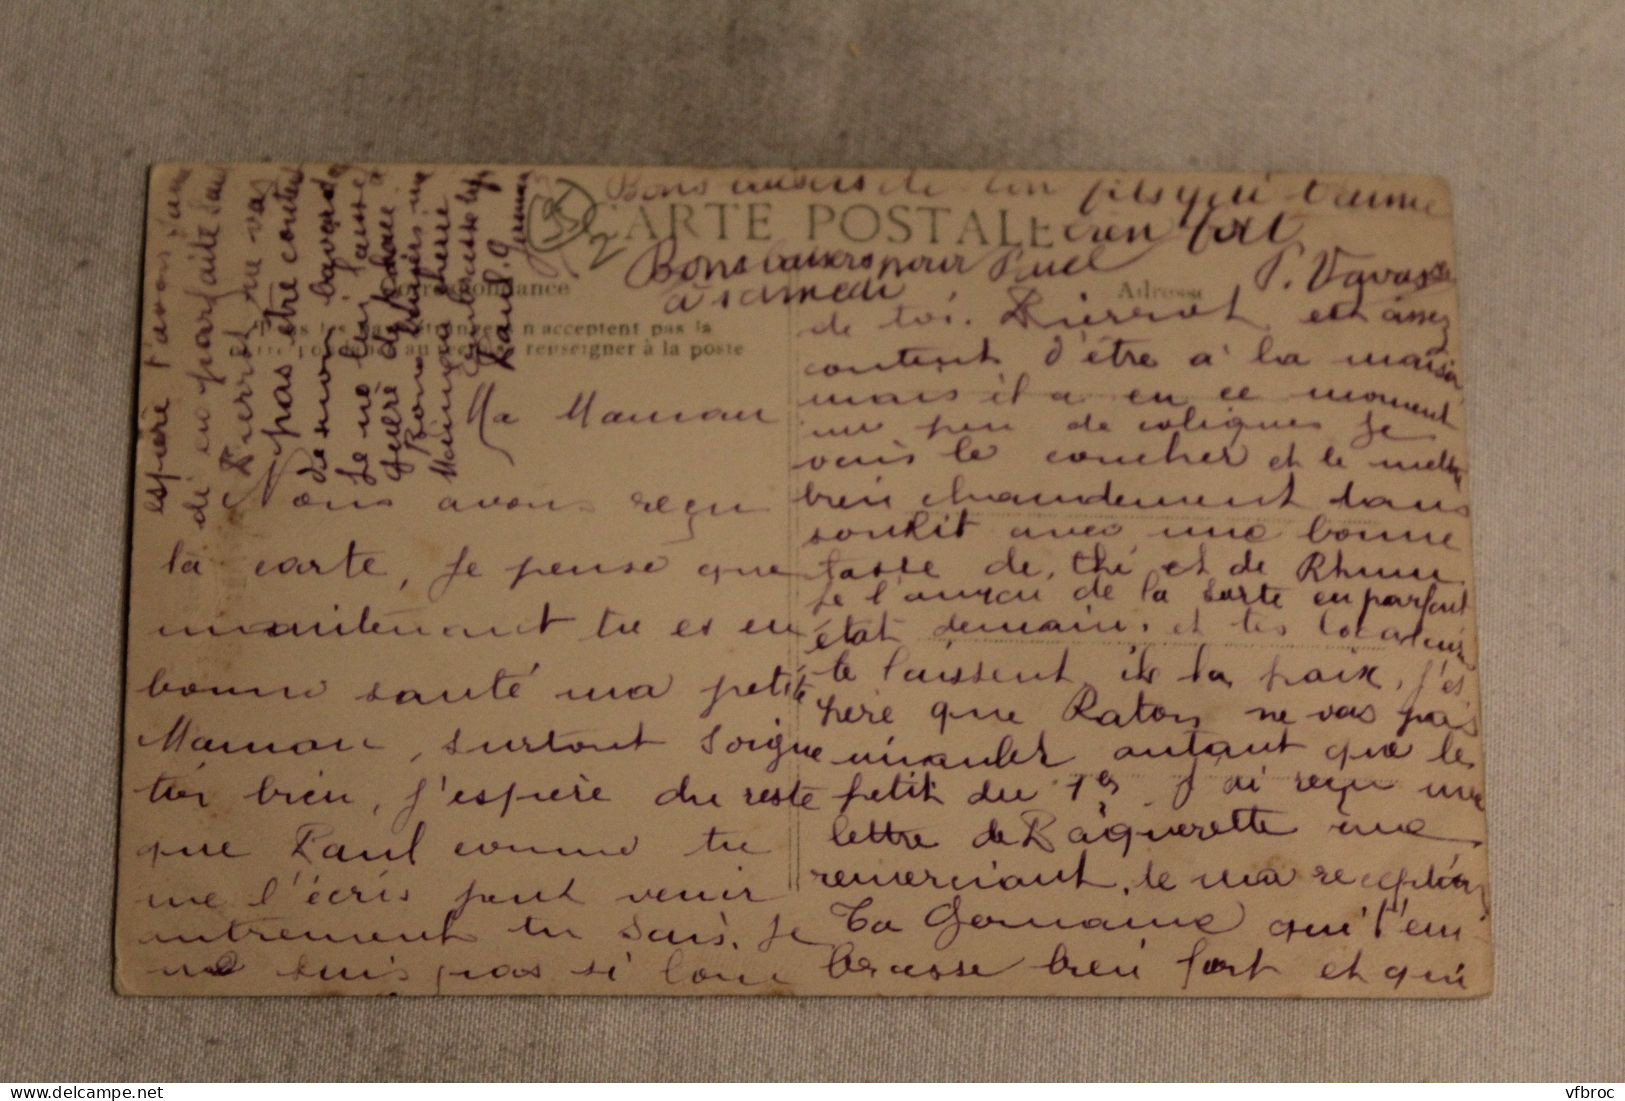 Bons baisers de ton fils qui t'aime
bien fort
CARTE POSTALE
Bons baisers pour
à samedi
P. Vavass
Correspondance
Adresse
n'acceptent pas la
renseigner à la poste
Ma Maman
Nous avons reçu
la carte, je pense que
maintenant tu es en
bonne santé ma petite
Maman, surtout soigne
toi bien, j'espère du reste
que Paul comme tu
me l'écris peut venir
autrement tu sais, je
ne suis pas si loin
de toi. Pierrot est assez
content d'être à la maison
mais il a en ce moment
un peu de coliques je
vais le coucher et le mettre
bien chaudement dans
son lit avec une bonne
tasse de thé et de Rhum
je l'aurai de la sorte en parfait
état demain, et tes locataires
te laissent ils la paix, j'es
père que Raton ne vas pas
miauler autant que le
petit du 1er J'ai reçu une
lettre de Paquerette me
remerciant, de ma réception
Ta Germaine qui t'em
brasse bien fort et qui
espère t'avoir
di en parfaite san
Pierrot ne vas
pas être conten
de mon bavarda
je ne lui laisse
guère de place
Bons baisers ma
Maman chérie
embrasse
Paul. G
vfbroc